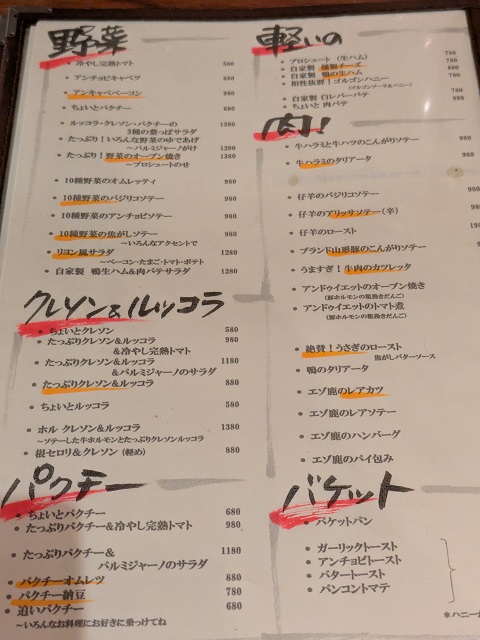 野菜
・冷やし完熟トマト 580
・アンチョビキャベツ 580
・アンキャベベーコン 880
・ちょいとパクチー 680
・ルッコラ・クレソン・パクチーの 1280
3種の葉っぱサラダ
・たっぷり！いろんな野菜のゆであげ 1280
～パルミジャーノがけ
・たっぷり！野菜のオーブン焼き 1380
～プロシュートのせ
・10種野菜のオムレッティ 980
・10種野菜のバジリコソテー 980
・10種野菜のアンチョビソテー 980
・10種野菜の魚がしソテー 980
～いろんなアクセントで
・リヨン風サラダ 1280
～ベーコン・たまご・トマト・ポテト
・自家製 鴨生ハム&肉パテサラダ 1280
クレソン&ルッコラ
・ちょいとクレソン 580
・たっぷりクレソン&ルッコラ 980
&冷やし完熟トマト
・たっぷりクレソン&ルッコラ 1180
&パルミジャーノのサラダ
・たっぷりクレソン&ルッコラ 880
・ちょいとルッコラ 580
・ホル クレソン&ルッコラ 1380
～ソテーした牛ホルモンとたっぷりクレソンルッコラ
・根セロリ&クレソン (軽め) 880
パクチー
・ちょいとパクチー 680
・たっぷりパクチー&冷やし完熟トマト 980
・たっぷりパクチー& 1180
パルミジャーノのサラダ
・パクチーオムレツ 880
・パクチー納豆 780
・追いパクチー 680
～いろんなお料理にお好きに乗っけてね
軽いの
・プロシュート (生ハム) 780
・自家製 燻製チーズ 880
・自家製 鴨の生ハム 780
・相性抜群！ゴルゴンハニー 780
(ゴルゴンゾーラ&ハニー)
・自家製 白レバーパテ 780
・ちょいと 肉パテ 880
肉！
・牛ハラミと牛ハツのこんがりソテー 980
・牛ハラミのタリアータ 980
・仔羊のバジリコソテー 980
・仔羊のアリッサソテー(辛) 980
・仔羊のロースト
・ブランド山形豚のこんがりソテー
・うますぎ！牛肉のカツレッタ
・アンドゥイエットのオーブン焼き
(豚ホルモンの粗挽きだんご)
・アンドゥイエットのトマト煮
(豚ホルモンの粗挽きだんご)
・絶賛！うさぎのロースト
焦がしバターソース
・鴨のタリアータ
・エゾ鹿のレアカツ
・エゾ鹿のレアソテー
・エゾ鹿のハンバーグ
・エゾ鹿のパイ包み
バケット
・バケットパン
・ガーリックトースト
・アンチョビトースト
・バタートースト
・パンコントマテ
＊ハニー